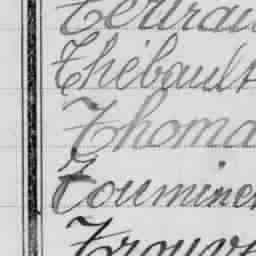 Tertrai
Thébault
Thoma
Toumine
Trouv